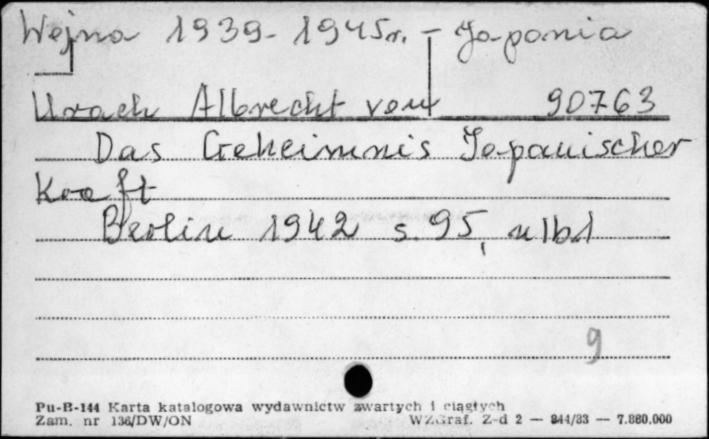 Wojna 1939-1945r. - Japonia
Urach Albrecht von 90763
Das Geheimnis Japanischer
Kraft
Berlin 1942 s. 95,
9
Pu-B-144 Karta katalogowa wydawnictw zwartych i ciągłych
Zam. nr 136/DW/ON WZGraf. Z-d 2 — 844/83 — 7.880.000